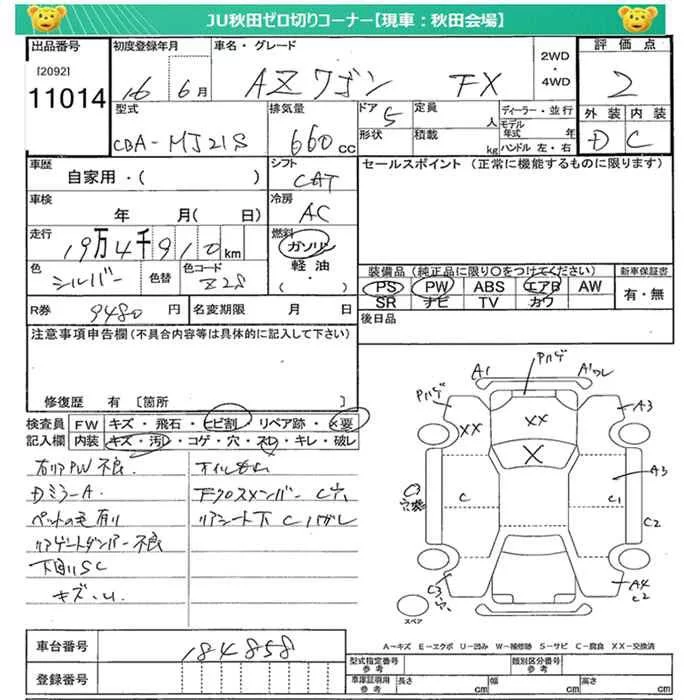 JU秋田ゼロ切りコーナー【現車:秋田会場】
出品番号
[2092]
11014
初度登録年月
16 6月
車名・グレード
AZワゴン FX
2WD
・
4WD
評価点
2
外装 内装
D C
型式
CBA-MJ21S
排気量
660 cc
ドア 5
形状
定員 人
積載 kg
ディーラー・並行
モデル年式 年
ハンドル 左・右
車歴
自家用・( )
車検
年 月( 日)
走行
19万4千910km
色 シルバー
色替
色コード Z2S
シフト
CAT
冷房
AC
燃料
ガソリン
軽油
・( )
セールスポイント(正常に機能するものに限ります)
装備品(純正品に限り○をつけてください)
PS PW ABS エアB AW
SR ナビ TV カワ
新車保証書
有・無
R券 9480 円
名変期限 月 日
後日品
注意事項申告欄(不具合内容等は具体的に記入して下さい)
修復歴 有[箇所
検査員
記入欄
FW キズ・飛石・ヒビ割・リペア跡・×要
内装 キズ・汚レ・コゲ・穴・スレ・キレ・破レ
右リアPW不良
DミラーA
ペットの毛有り
リアゲートダンパー不良
下廻りSC
キズ・凹
オイルもれ
FクロスメンバーC穴
リアシート下Cハガレ
A1
Pハゲ
A1ワレ
Pハゲ
XX
XX
A3
X
A3
C
C1
C2
C3
穴
A4
C2
スペア
A-キズ E-エクボ U-凹み W-補修跡 S-サビ C-腐食 XX-交換済
車台番号
184858
登録番号
型式指定番号
参考
類別区分番号
参考
車庫証明用
参考
長さ cm
幅 cm
高さ cm